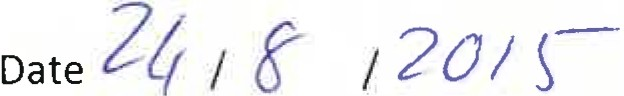 Date 24/8/2015